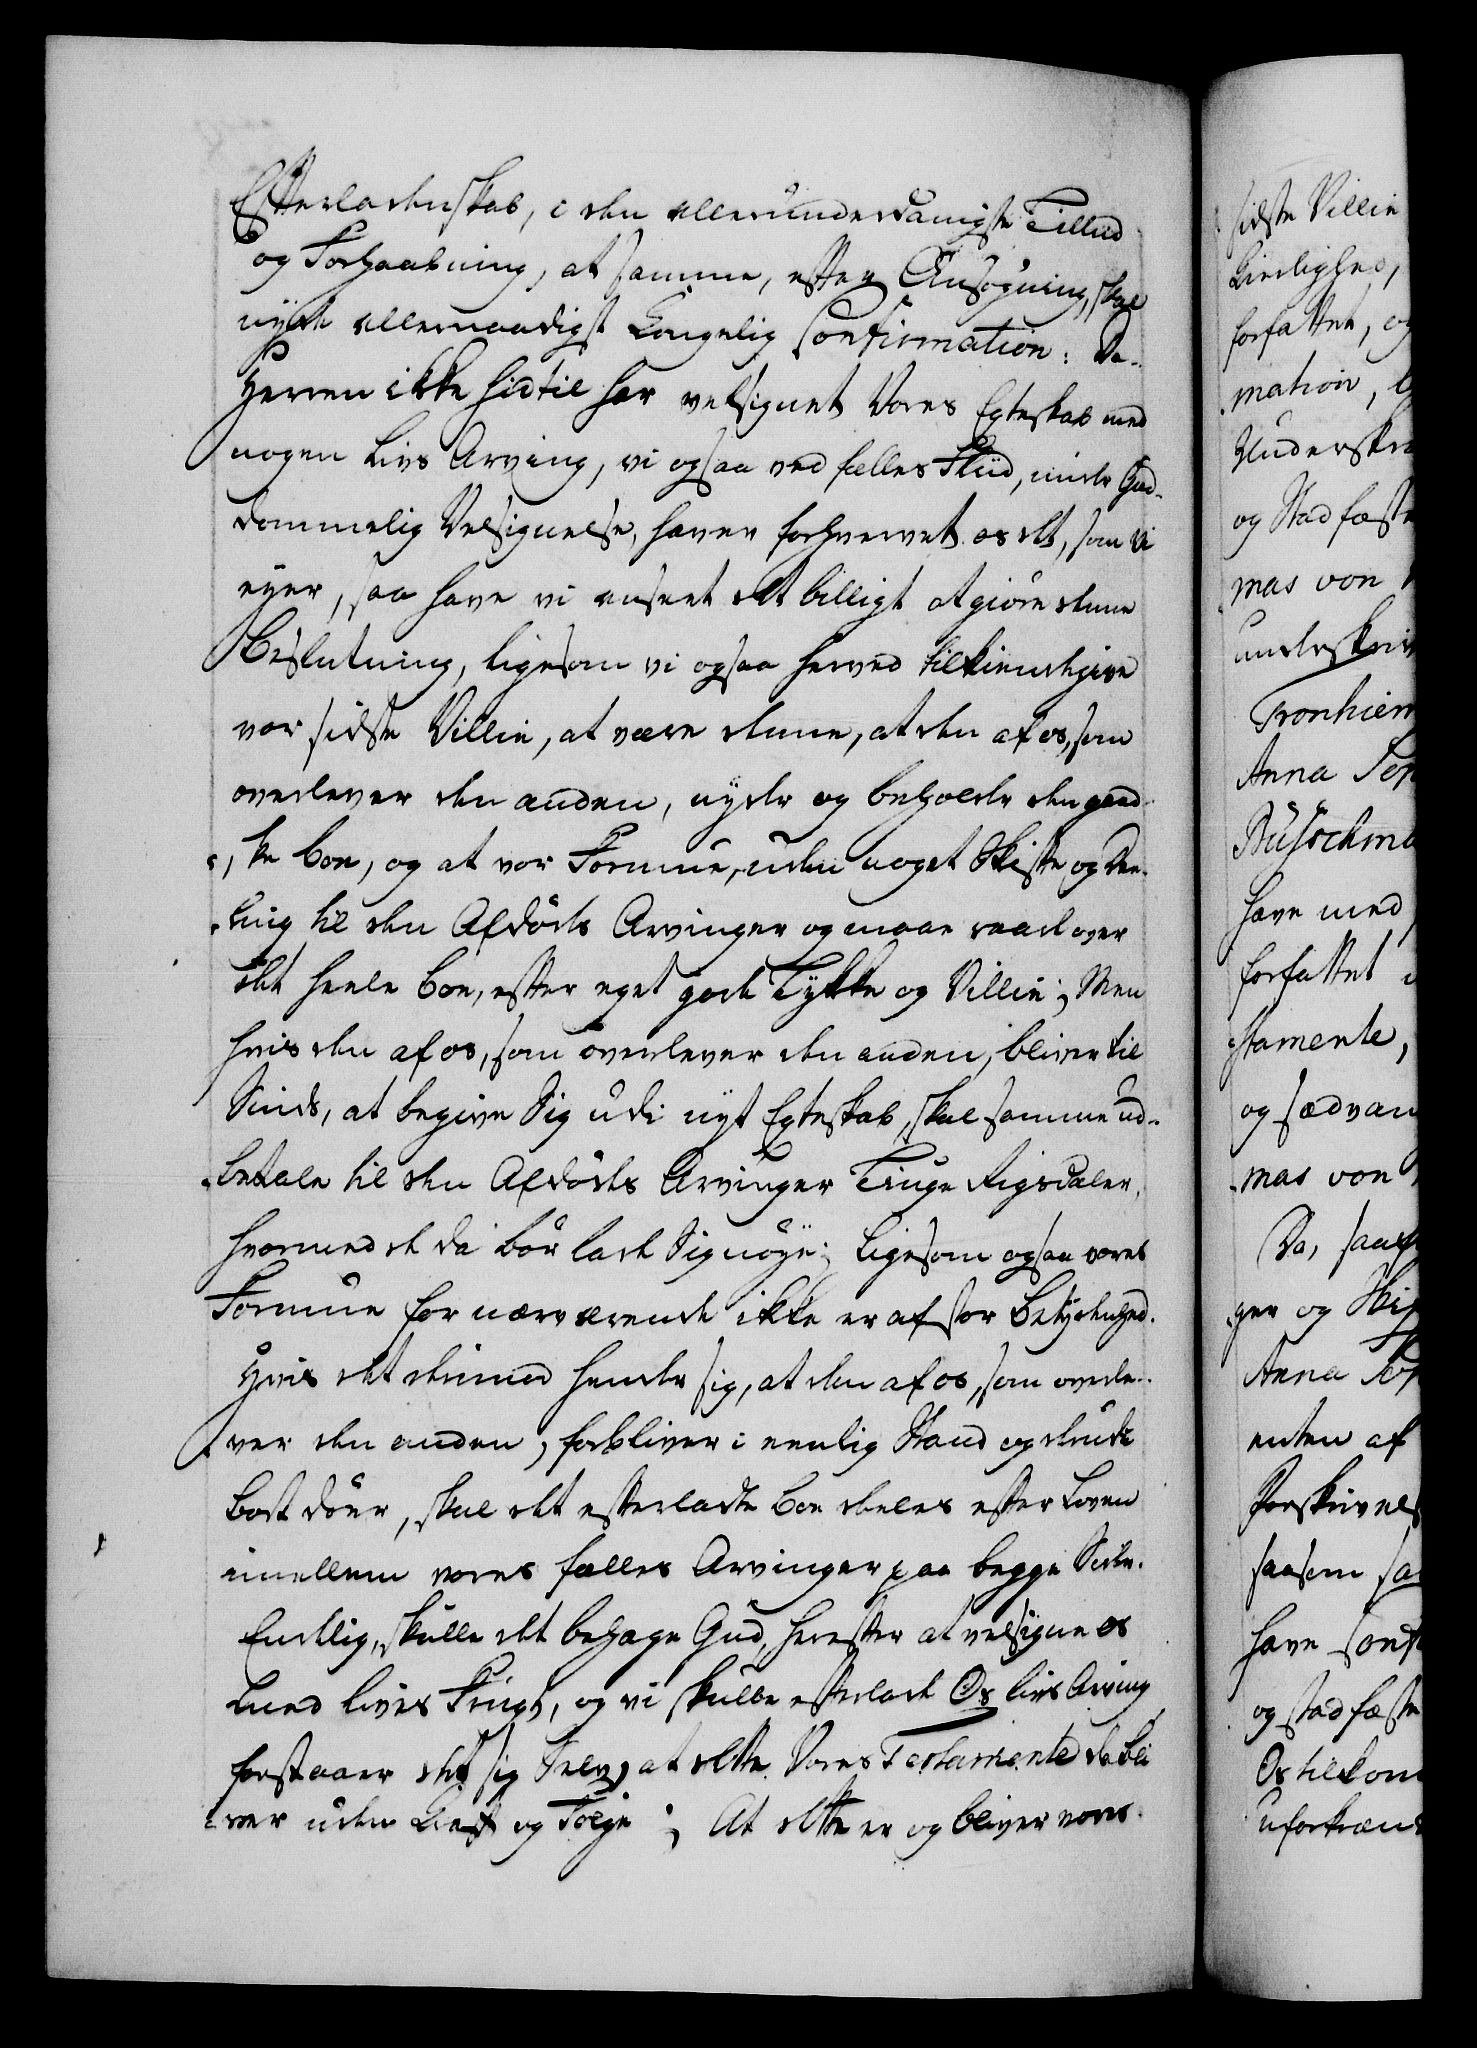 Efterladenskab, i den allerunderdanigste Tillid
og Forhaabning, at samme, efter Ansögning, skal
nyde allernaadigst Kongelig Confirmation: Da
Herren ikke hidtil har velsignet Vores Egteskab med
nogen Livs Arving, vi ogsaa ved fælles Fliid, under Gud-
dommelig Velsignelse, haver forhvervet os det, som vi
eyer, saa have vi anseet det billigt at giöre denne
Beslutning, ligesom vi ogsaa herved tilkiendegive
vor sidste Villie, at være denne, at den af os, som
overlever den anden, nyder og beholder den gand-
ske Boe, og at vor Formue, uden noget Skifte og Dee-
ling til den Afdödes Arvinger og maae raade over
det heele Boe, efter eget gode Tykke og Villie; Men
hvis den af os, som overlever den anden, bliver til
Sinds, at begive Sig udi nyt Egteskab, skal samme ud-
betale til den Afdödes Arvinger Tiuge Rigsdaler,
hvormed de da bör lade Sig nöye; Ligesom ogsaa vores
Formue for nærværende ikke er af stor Betydenhed.
Hvis det derimod hender sig, at den af os, som overle-
ver den anden, forbliver i eenlig Stand og ved
döer, skal det efterladte Boe deeles efter Loven
imellem vores fælles Arvinger paa begge Sider.
Endelig, skulle det behage Gud, herefter at velsigne os
med Livs Frugt, og vi skulle efterlade Os Livs Arving
forstaaer det sig Selv, at dette Vores Testamente da bli
ver uden Kraft og Fölge; At dette er og bliver vores
sidste Villie
forfattet, og
mation,
og Stadfæste
mas von
underskriv
Tronhiem
Anna
have med
forfattet
stamente,
og sædvan
mas von
Da, saa
ger og
Anna
enten af
Forskrivels
saasom
have
og stadfæste
Os tilkom
uforkræn